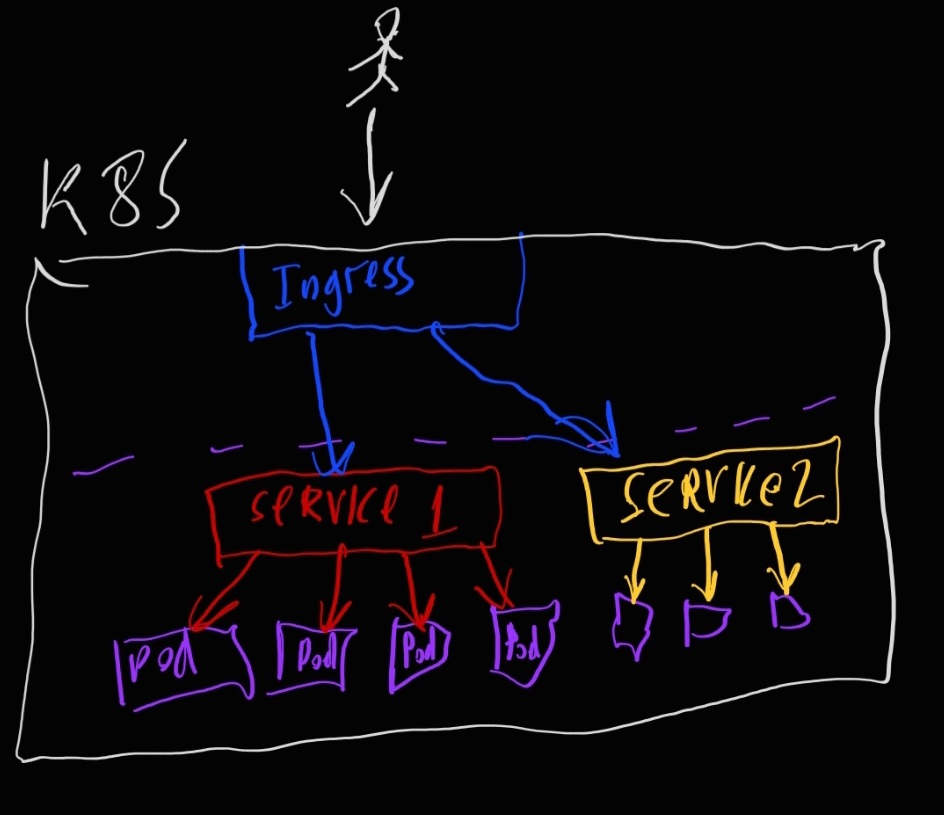 K8S
Ingress
Service 1
Service 2
Pod Pod Pod Pod